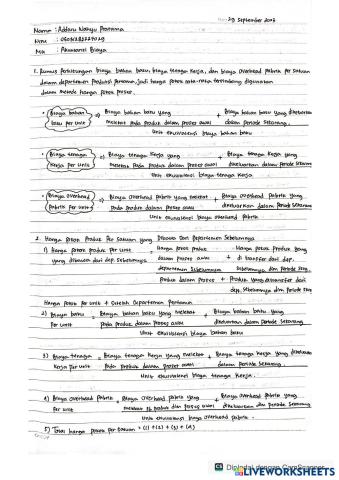 29 September 2023
Nama : Addaru Wahyu Pratama
NPM :
MK : Akuntansi Biaya
1. Rumus perhitungan biaya bahan baku, biaya tenaga kerja, dan biaya overhead pabrik per satuan
dalam departemen produksi pertama, jadi harga pokok rata-rata tertimbang digunakan
dalam metode harga pokok proses.
• Biaya bahan baku per unit ⇒ Biaya bahan baku yang melekat pada produk dalam proses awal + Biaya bahan baku yang dikeluarkan dalam periode sekarang.
Unit ekuivalensi biaya bahan baku
• Biaya tenaga kerja per unit ⇒ Biaya tenaga kerja yang melekat pada produk dalam proses awal + Biaya tenaga kerja yang dikeluarkan dalam periode sekarang
Unit ekuivalensi biaya tenaga kerja
• Biaya overhead pabrik per unit ⇒ Biaya overhead pabrik yang melekat pada produk dalam proses awal + Biaya overhead pabrik yang dikeluarkan dalam periode sekarang
Unit ekuivalensi biaya overhead pabrik
2. Harga pokok produk per satuan yang dibawa dari departemen sebelumnya
1) Harga pokok produk per unit = Harga pokok produk Harga pokok produk yang
yang dibawa dari dep. sebelumnya dalam proses awal + di transfer dari dep.
departemen sebelumnya sebelumnya dlm periode
Produk dalam proses + Produk yang ditransfer dari
dep. sebelumnya dlm periode
Harga pokok per unit + setelah departemen pertama
2) Biaya bahan = Biaya bahan baku yang melekat + Biaya bahan baku yang
per unit pada produk dalam proses awal dikeluarkan dalam periode sekarang
Unit ekuivalensi biaya bahan baku
3) Biaya tenaga = Biaya tenaga kerja yang melekat + Biaya tenaga kerja yang
kerja per unit pada produk dalam proses awal dalam periode sekarang.
Unit ekuivalensi biaya tenaga kerja.
4) Biaya overhead pabrik Biaya overhead pabrik yang + Biaya overhead pabrik yang
per unit dalam proses awal dikeluarkan dalam periode sekarang
Unit ekuivalensi biaya overhead pabrik.
5) Total harga pokok per satuan = (1) + (2) + (3) + (4)
Dipindai dengan CamScanner
LIVEWORKSHEETS